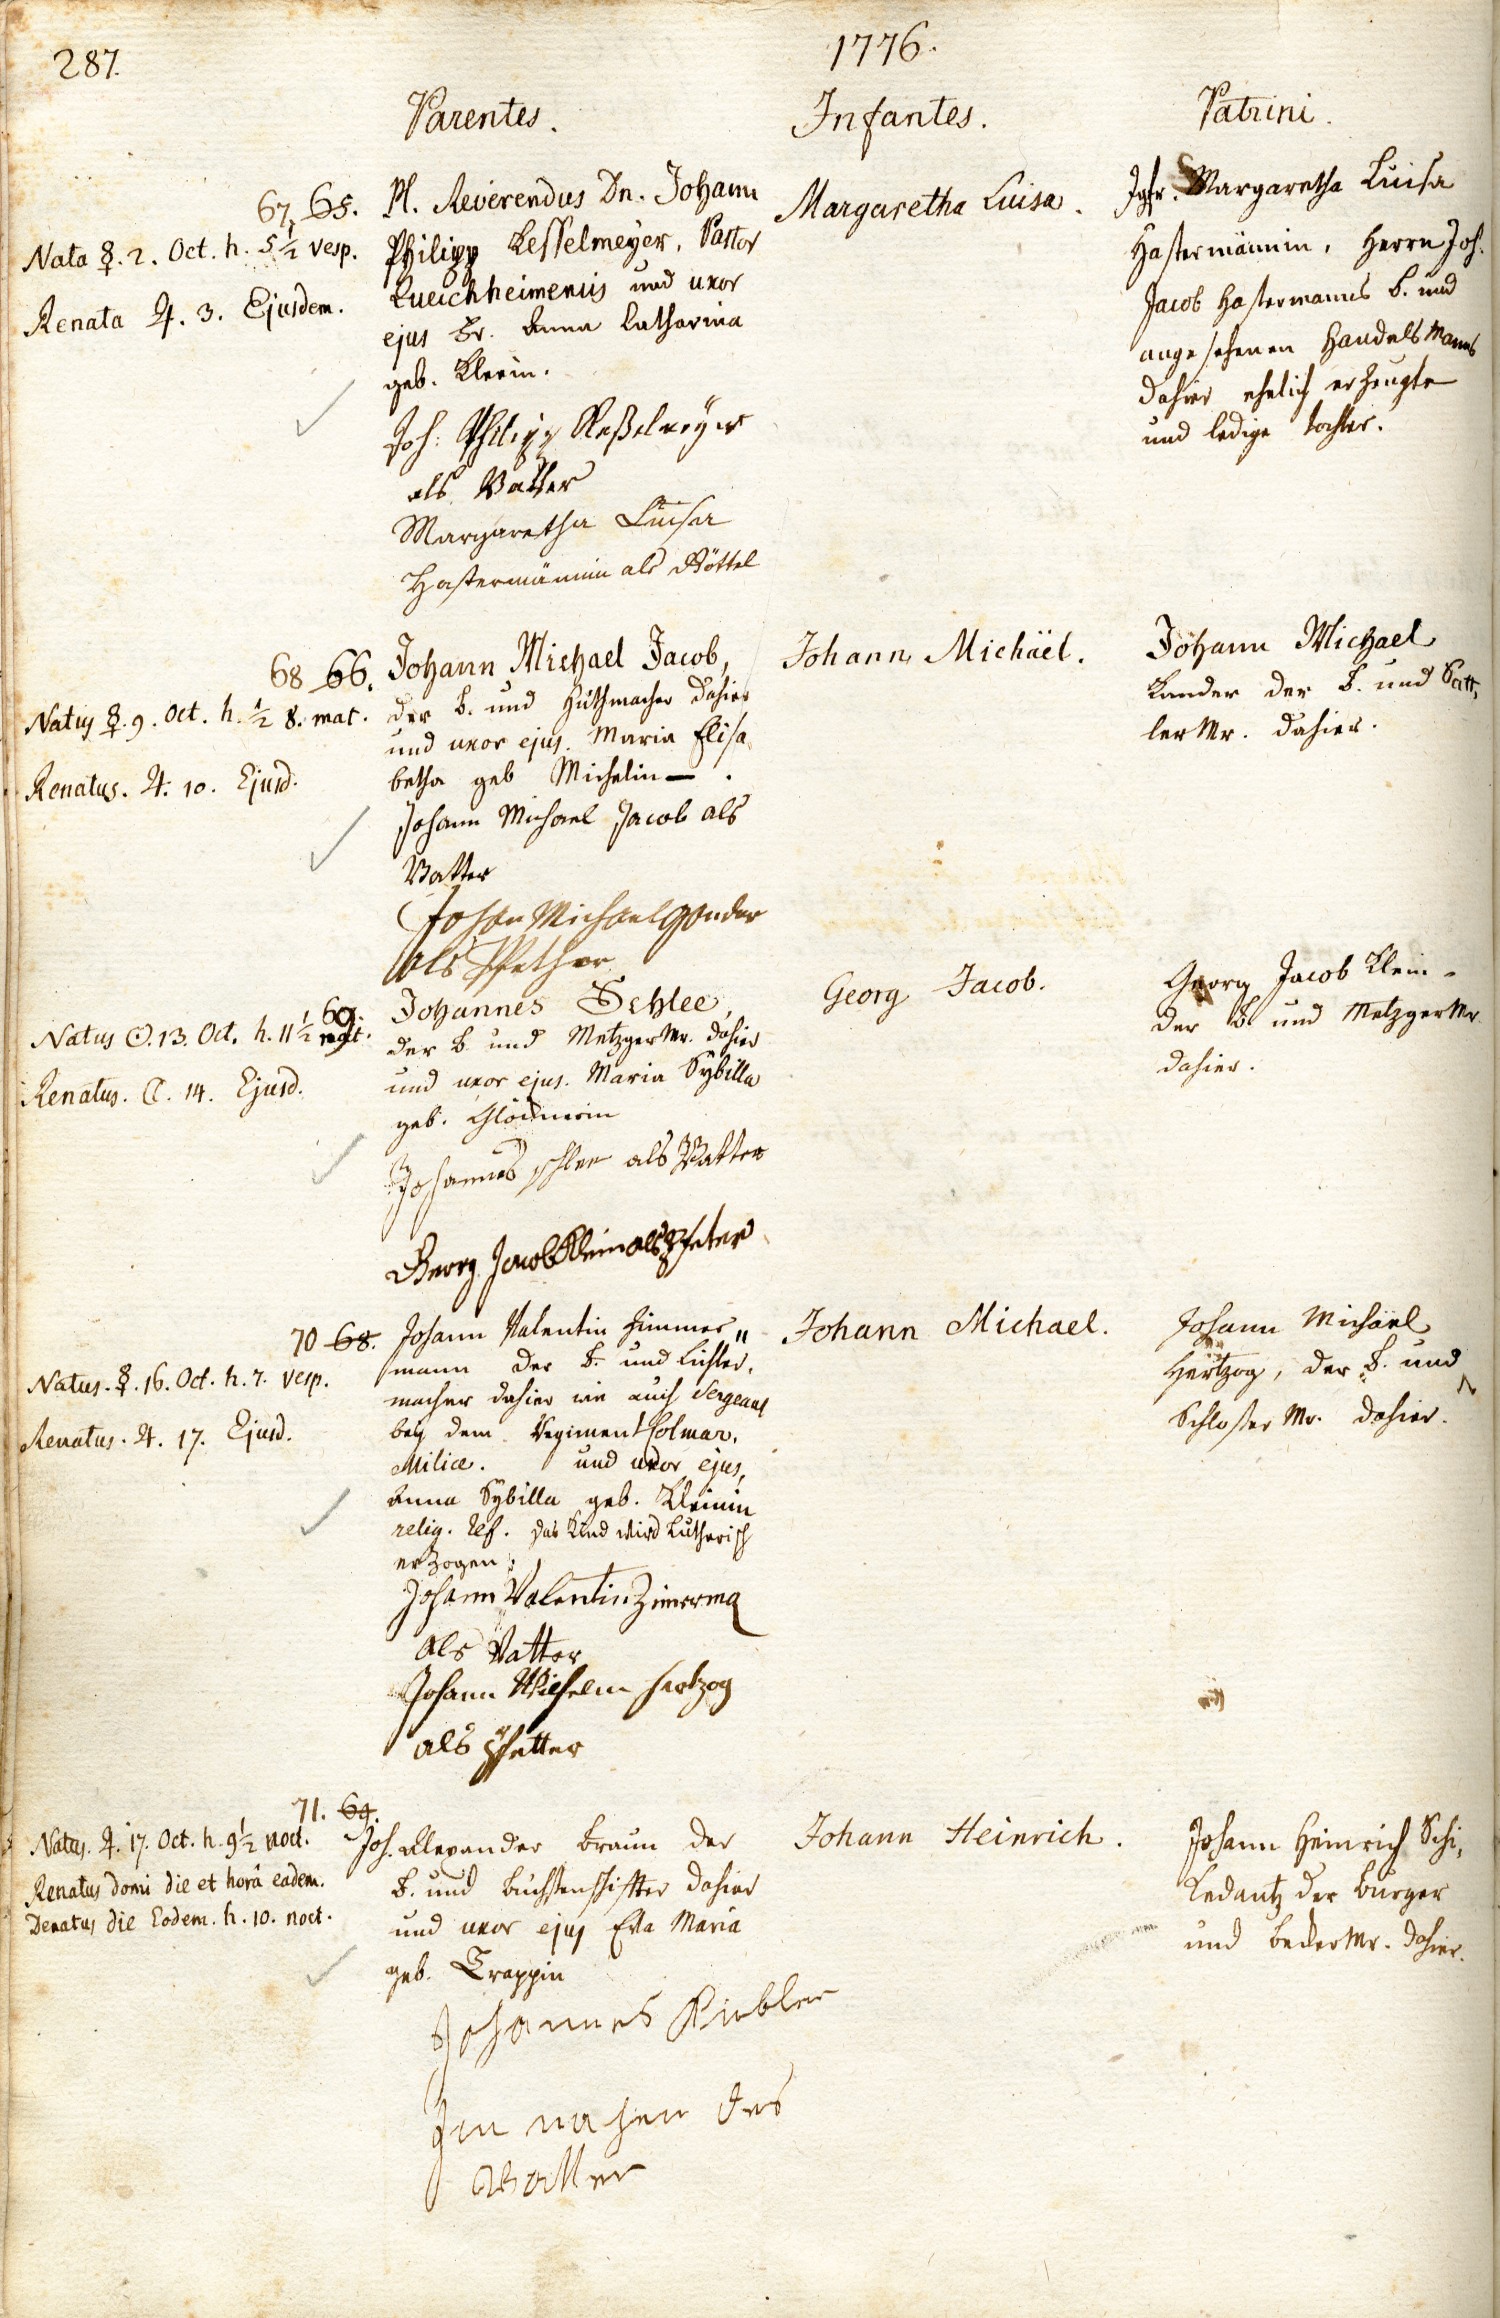 287.
1776.
Parentes.
Infantes.
Patrini.
67. 65.
Nata ☿. 2. Oct. h. 5½ vesp.
Renata ♃. 3. Ejusdem.
Pl. Reverendus Dn. Johann
Philipp Kesselmeyer, Pastor
ejus Fr. Anna Catharina
geb. Kleein.
Joh: Philipp Keßelmeyer
als Vatter
Margaretha Luisa
Hastermännin als Göttel
Margaretha Luisa.
Jgfr. Margaretha Luisa
Hastermännin, Herrn Joh.
Jacob Hastermanns b. und
angesehenen Handelsmanns
dahier ehelich erzeugte
und ledige tochter.
68 66.
Natus ☿. 9. Oct. h. ½ 8. mat.
Renatus. ♃. 10. Ejusd.
Johann Michael Jacob,
der b. und Huthmacher dahier
und uxor ejus. Maria Elisa
betha geb Michelin — .
Johann Michael Jacob als
Vatter
Johan Michael Gander
als Pfether
Johann Michäel.
Johann Michael
Kander der b. und Satt,
ler Mr. dahier.
69.
Natus ☉. 13. Oct. h. 11½
Renatus. ☾. 14. Ejusd.
Johannes Schlee,
der b. und Metzger Mr. dahier
und uxor ejus. Maria Sÿbilla
geb.
Johannes schlee als Vatter
Georg Jacob Klein als Pfeter
Georg Jacob.
Georg Jacob Klein
der b. und Metzger Mr.
dahier.
70 68.
Natus. ☿. 16. Oct. h. 7. vesp.
Renatus. ♃. 17. Ejusd.
Johann Valentin Zimmer„
mann der b. und Lichter,
macher dahier wie auch Sergeant
bey dem Regiment Colmar.
Milice. und uxor ejus,
Anna Sybilla geb. Kleinin
relig. ref. das Kind wird Lutherisch
erzogen.
Johann Valentin Zimerma
als Vatter
Johann Wilhelm Hertzog
als Pfetter
Johann Michael.
Johann Michäel
Hertzog, der b. und
Schloßer Mr. dahier.
71. 69.
Natus. ♃. 17. Oct. h. 9½ noct.
Renatus domi die et horâ eadem.
Denatus die Eodem. h. 10. noct.
Joh. Alexander Braun der
b. und Büchsenschiffter dahier
und uxor ejus Eva Maria
geb. Trappin
Johannes Kiebler
Im nahen des
Vatter
Johann Heinrich.
Johann Heinrich Schi,
kedantz der burger
und becker Mr. dahier.